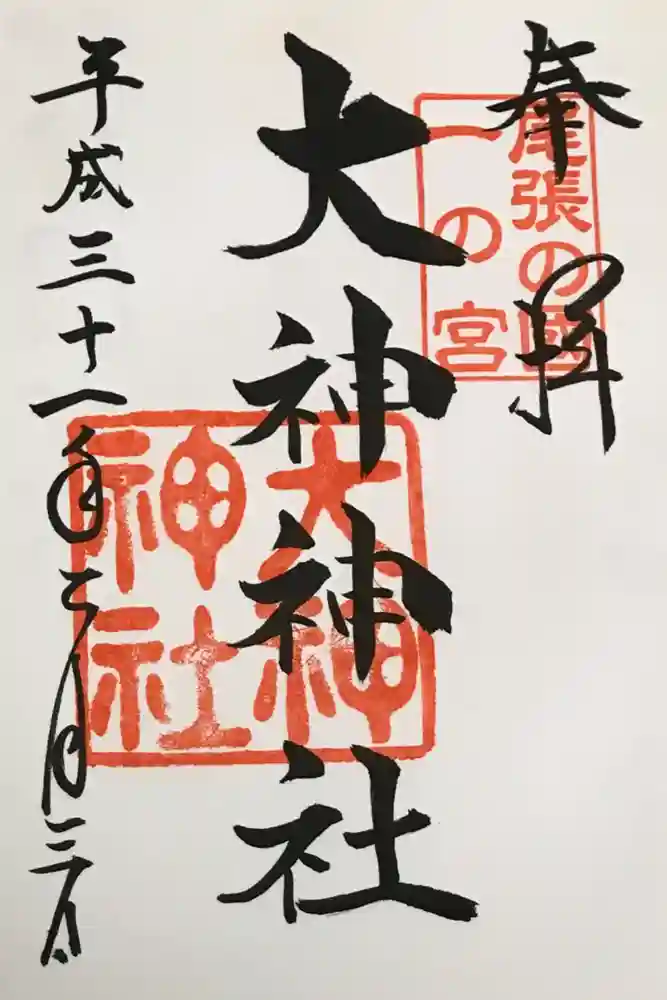 奉拝
尾張の國
一の宮
大神神社
大神
神社
平成三十一年二月三日